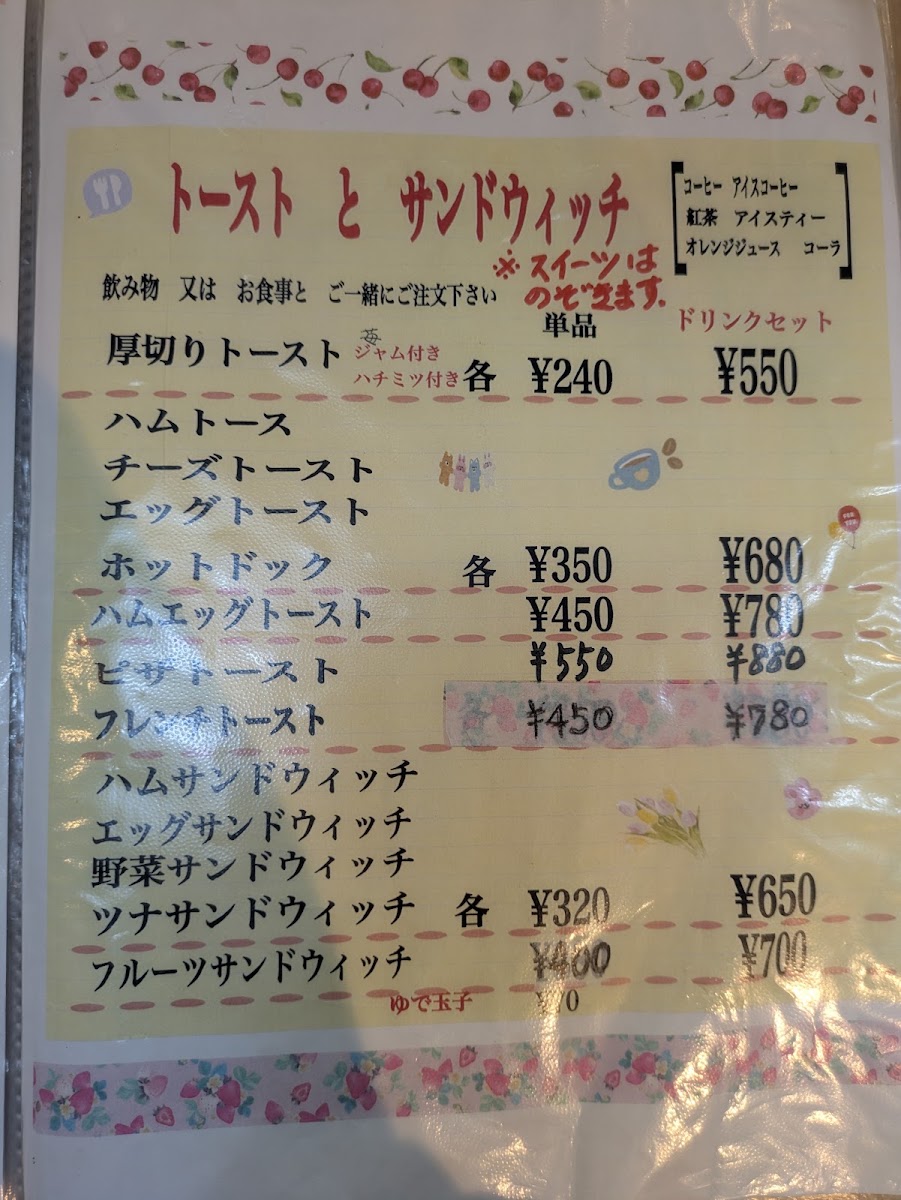 トースト と サンドウィッチ
コーヒー アイスコーヒー
紅茶 アイスティー
オレンジジュース コーラ
※ スイーツは
のぞきます.
飲み物 又は お食事と ご一緒にご注文下さい
単品 ドリンクセット
厚切りトースト 苺ジャム付き
ハチミツ付き 各 ¥240 ¥550
ハムトース
チーズトースト
エッグトースト
ホットドック 各 ¥350 ¥680
ハムエッグトースト ¥450 ¥780
ピザトースト ¥550 ¥880
フレンチトースト 各 ¥450 ¥780
ハムサンドウィッチ
エッグサンドウィッチ
野菜サンドウィッチ
ツナサンドウィッチ 各 ¥320 ¥650
フルーツサンドウィッチ ¥400 ¥700
ゆで玉子 ¥70